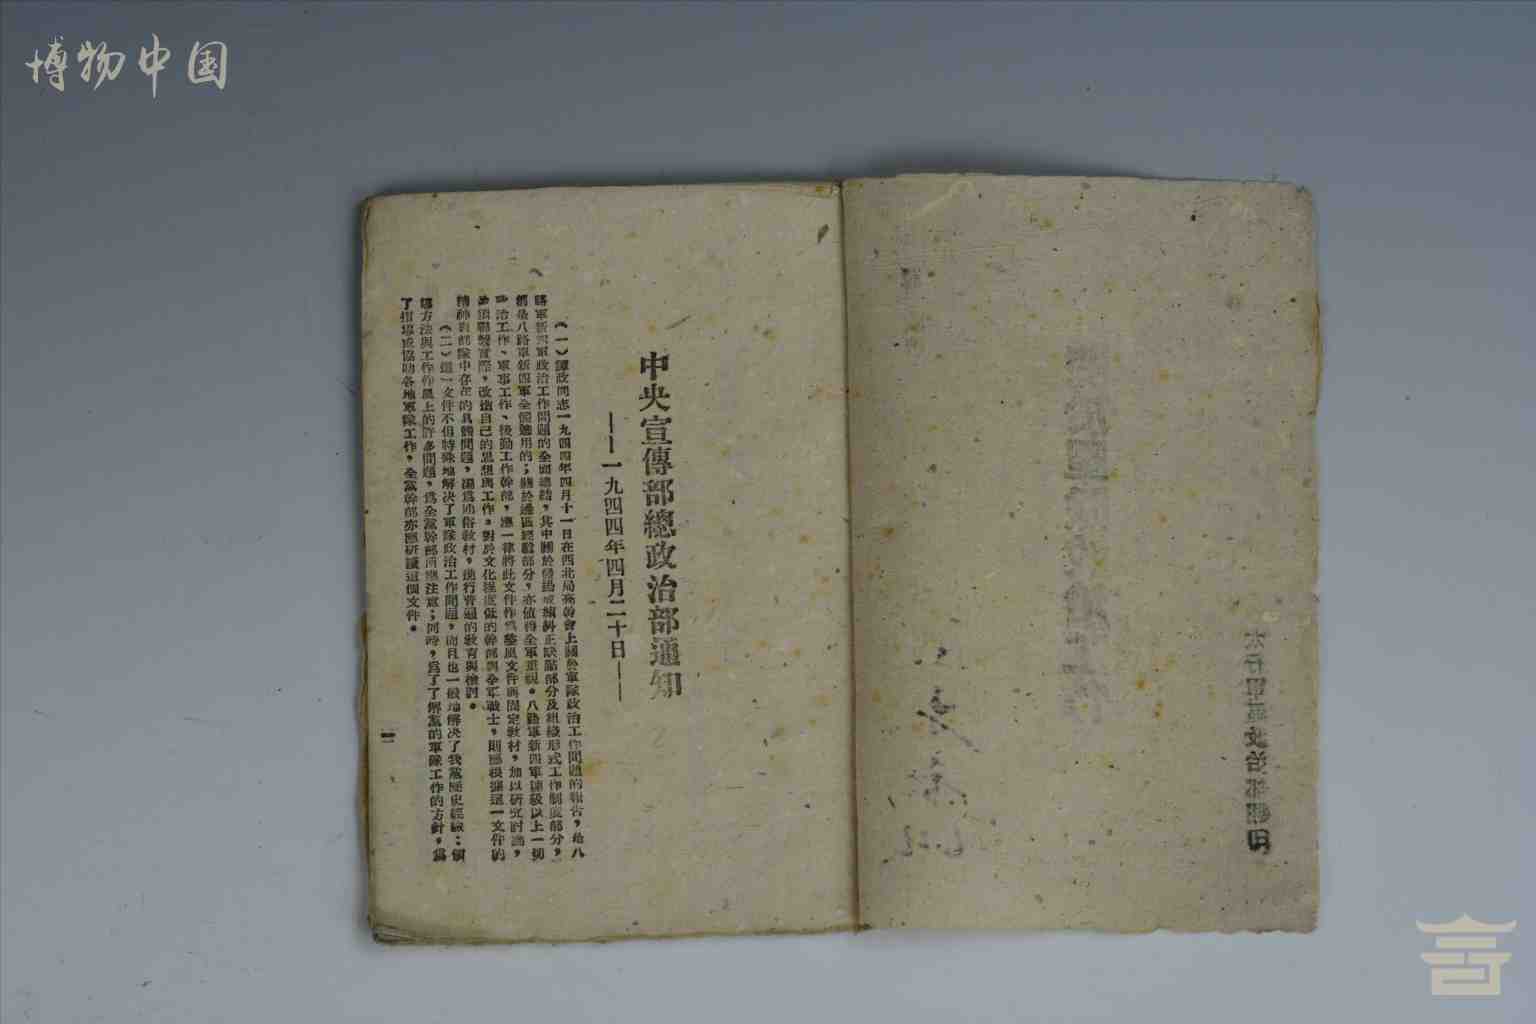 博物中国
中央宣傳部總政治部通知
——一九四四年四月二十日——
(一)譚政同志一九四四年四月十一日在西北局高幹會上關於軍隊政治工作問題的報告，是八
路軍新四軍政治工作問題的全面總結，其中關於 部分及組織形式工作制度部分，
是八路軍新四軍全體適用的；關於邊區經驗部分，亦值得全軍重視。八路軍新四軍 級以上一切
政治工作、軍事工作、後勤工作幹部，應一律將此文件作為整風文件與固定教材，加以研究討論，
聯繫實際，改造自己的思想與工作。對於文化程度低的幹部與全軍戰士，則應根據這一文件的
精神與部隊中存在的具體問題，編為通俗教材，進行普遍的教育與檢討。
(二)這一文件不但特殊地解決了軍隊政治工作問題，而且也一般地解決了我黨歷史經驗：領
導方法與工作作風上的許多問題，為全黨幹部所應注意；同時，為了了解黨的軍隊工作的方針，為
了指導或協助各地軍隊工作，全黨幹部亦應研讀這個文件。
一
太行軍區政治部翻印